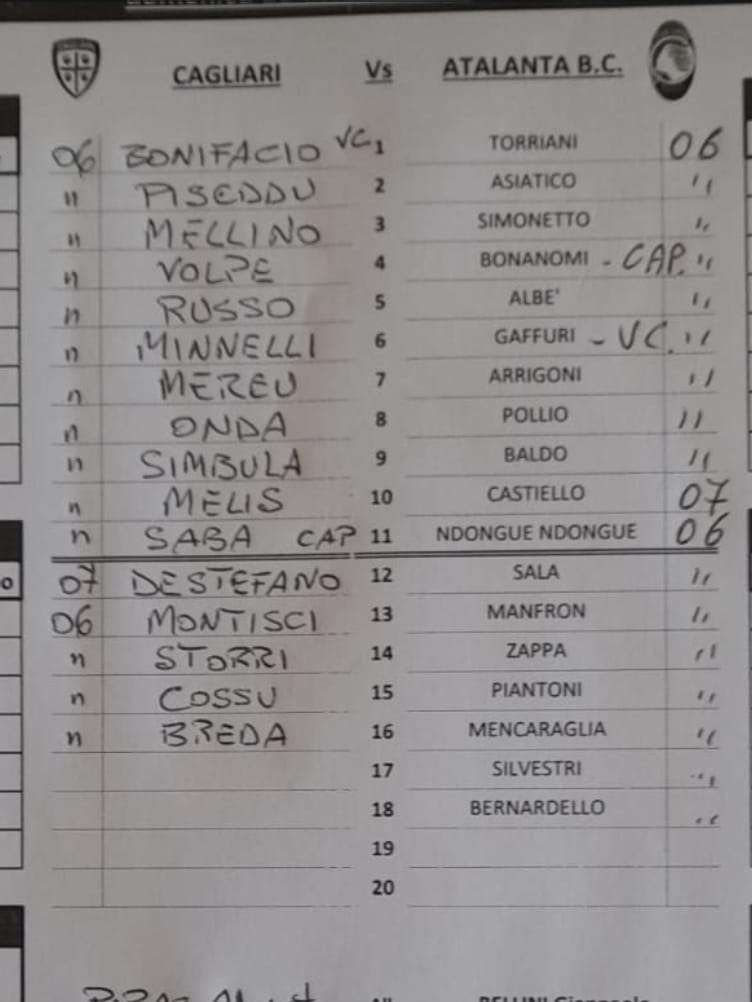 CAGLIARI Vs ATALANTA B.C.
06 BONIFACIO VC 1 TORRIANI 06
" PISEDDU 2 ASIATICO "
" MELLINO 3 SIMONETTO "
" VOLPE 4 BONANOMI - CAP. "
" RUSSO 5 ALBE' "
" MINNELLI 6 GAFFURI - VC. "
" MEREU 7 ARRIGONI "
" ONDA 8 POLLIO "
" SIMBULA 9 BALDO "
" MELIS 10 CASTIELLO 07
" SABA CAP 11 NDONGUE NDONGUE 06
07 DESTEFANO 12 SALA "
06 MONTISCI 13 MANFRON "
" STORRI 14 ZAPPA "
" COSSU 15 PIANTONI "
" BREDA 16 MENCARAGLIA "
17 SILVESTRI "
18 BERNARDELLO "
19
20